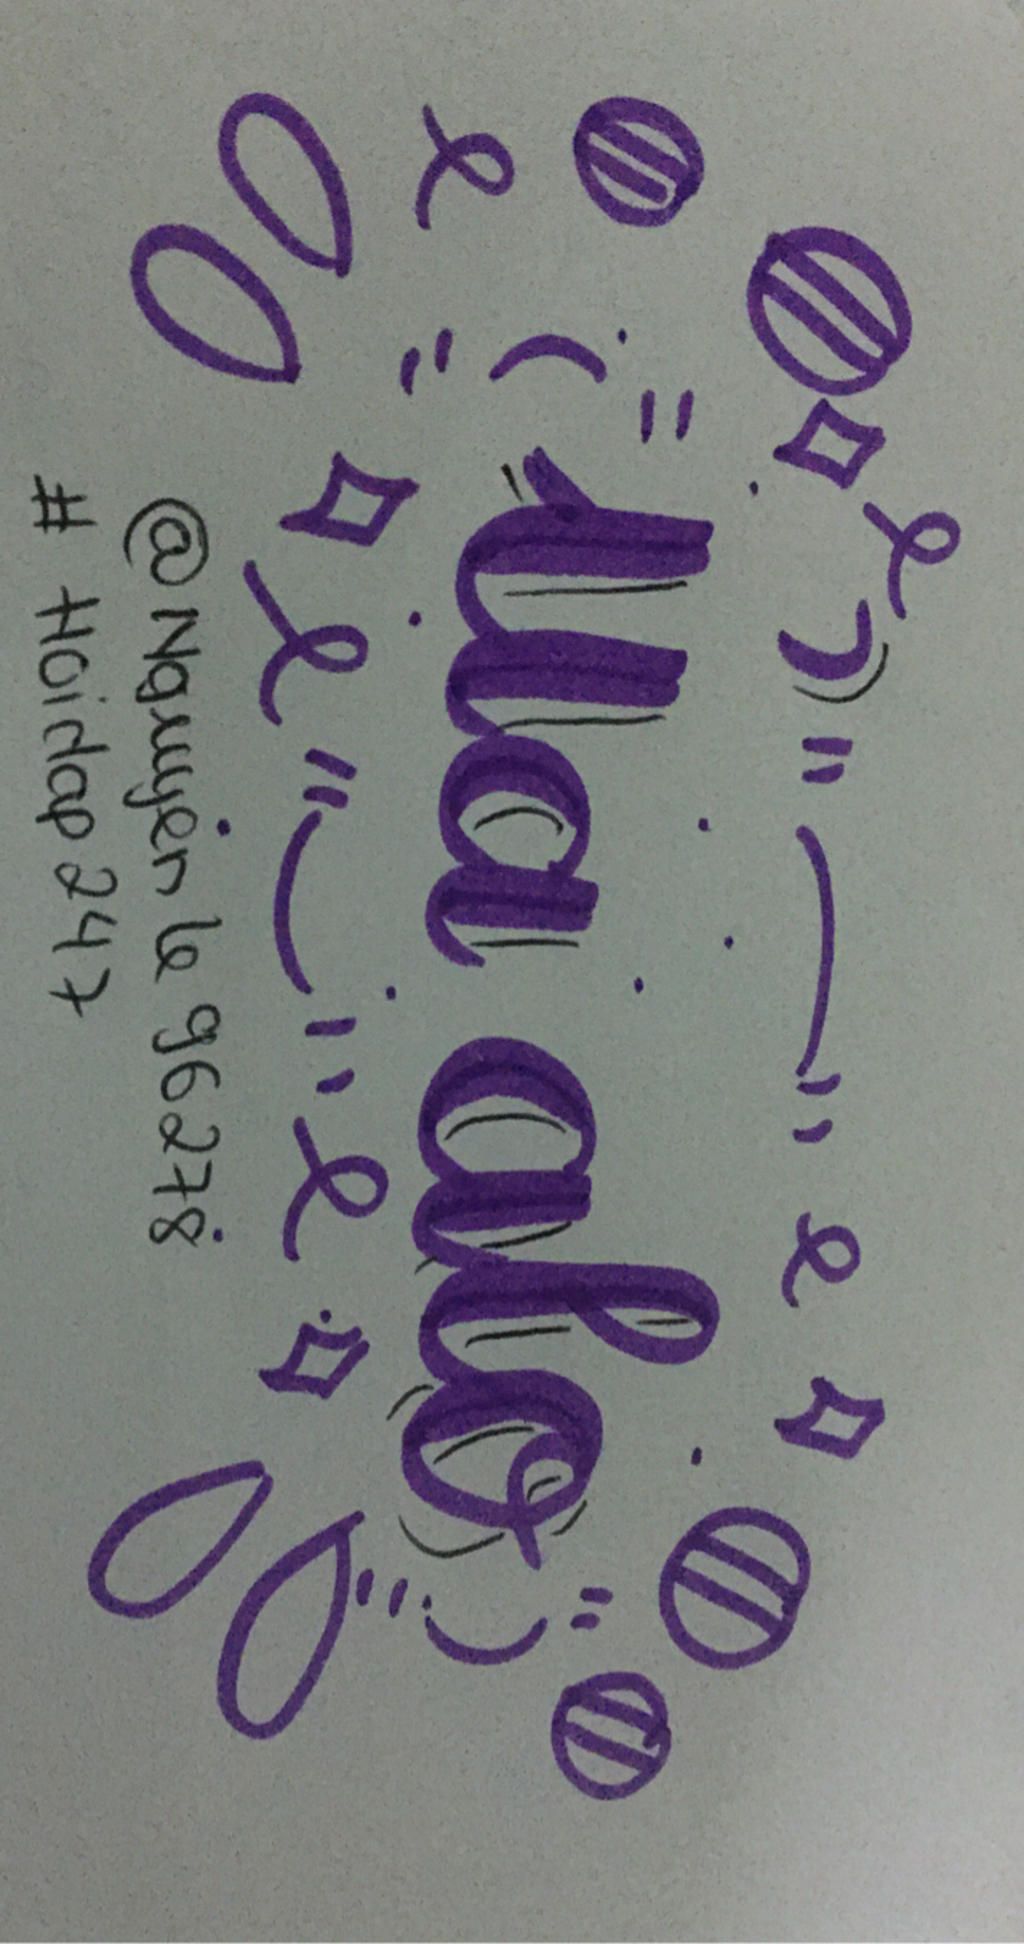 Ủa alo
@Nguyenle96278
# Hoidap247